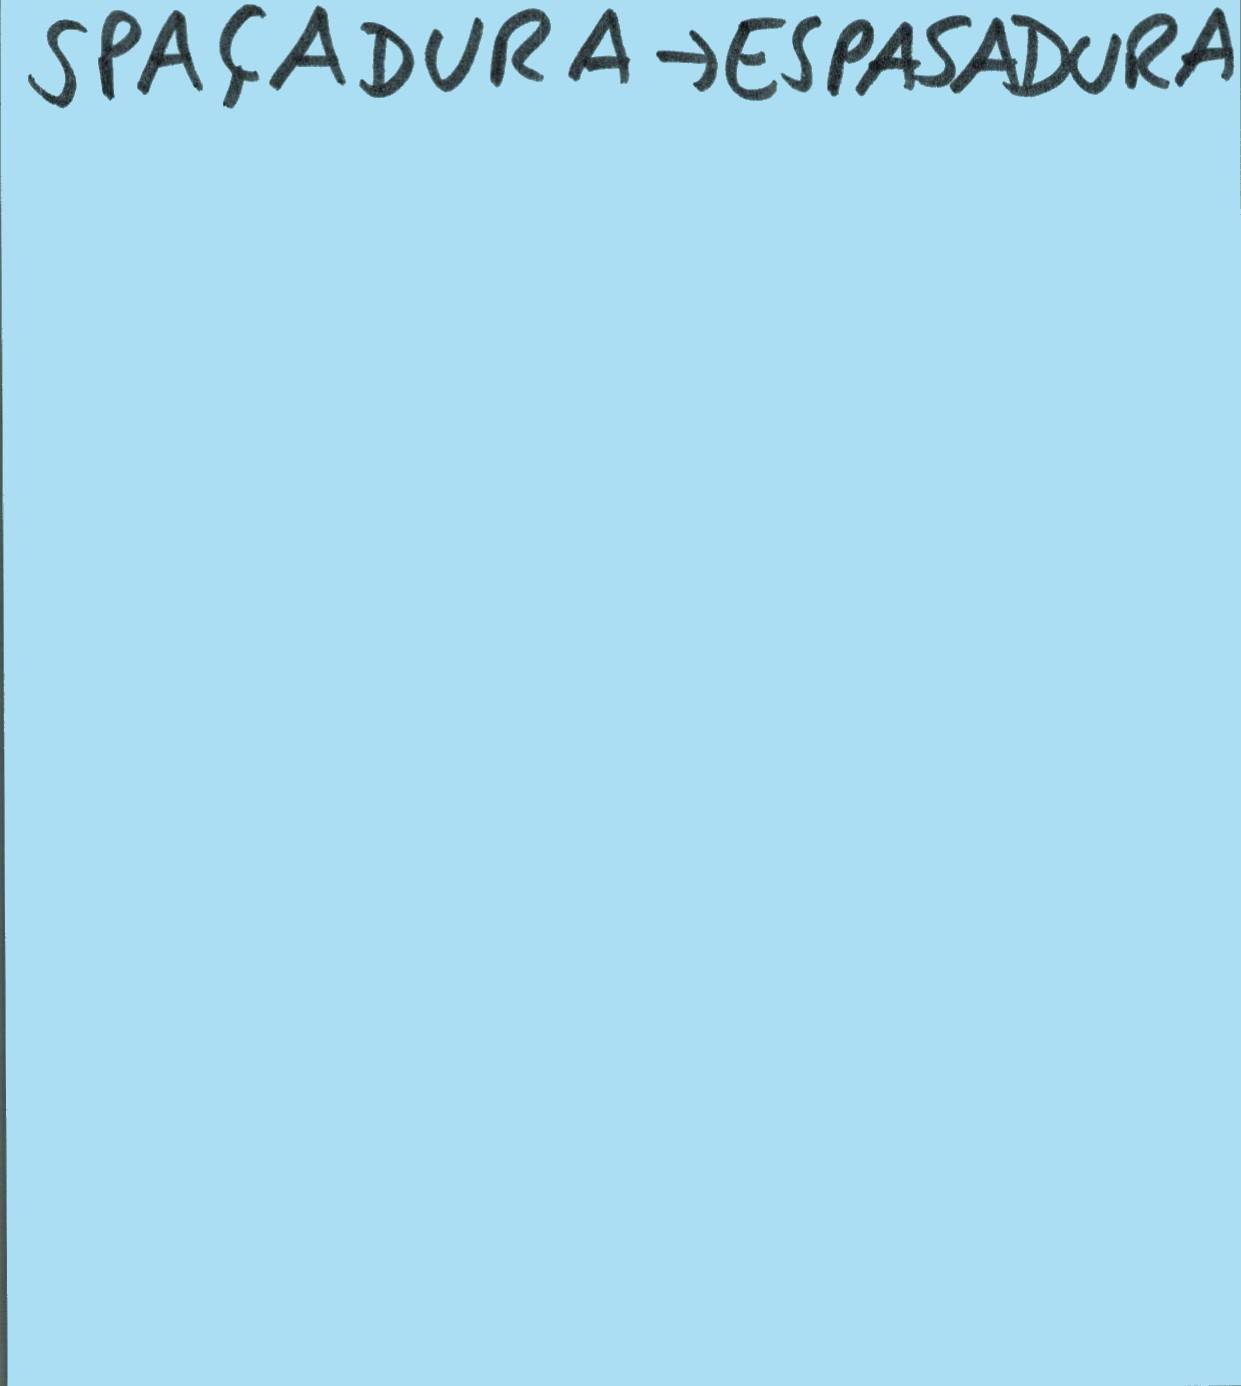 SPAÇADURA → ESPASADURA